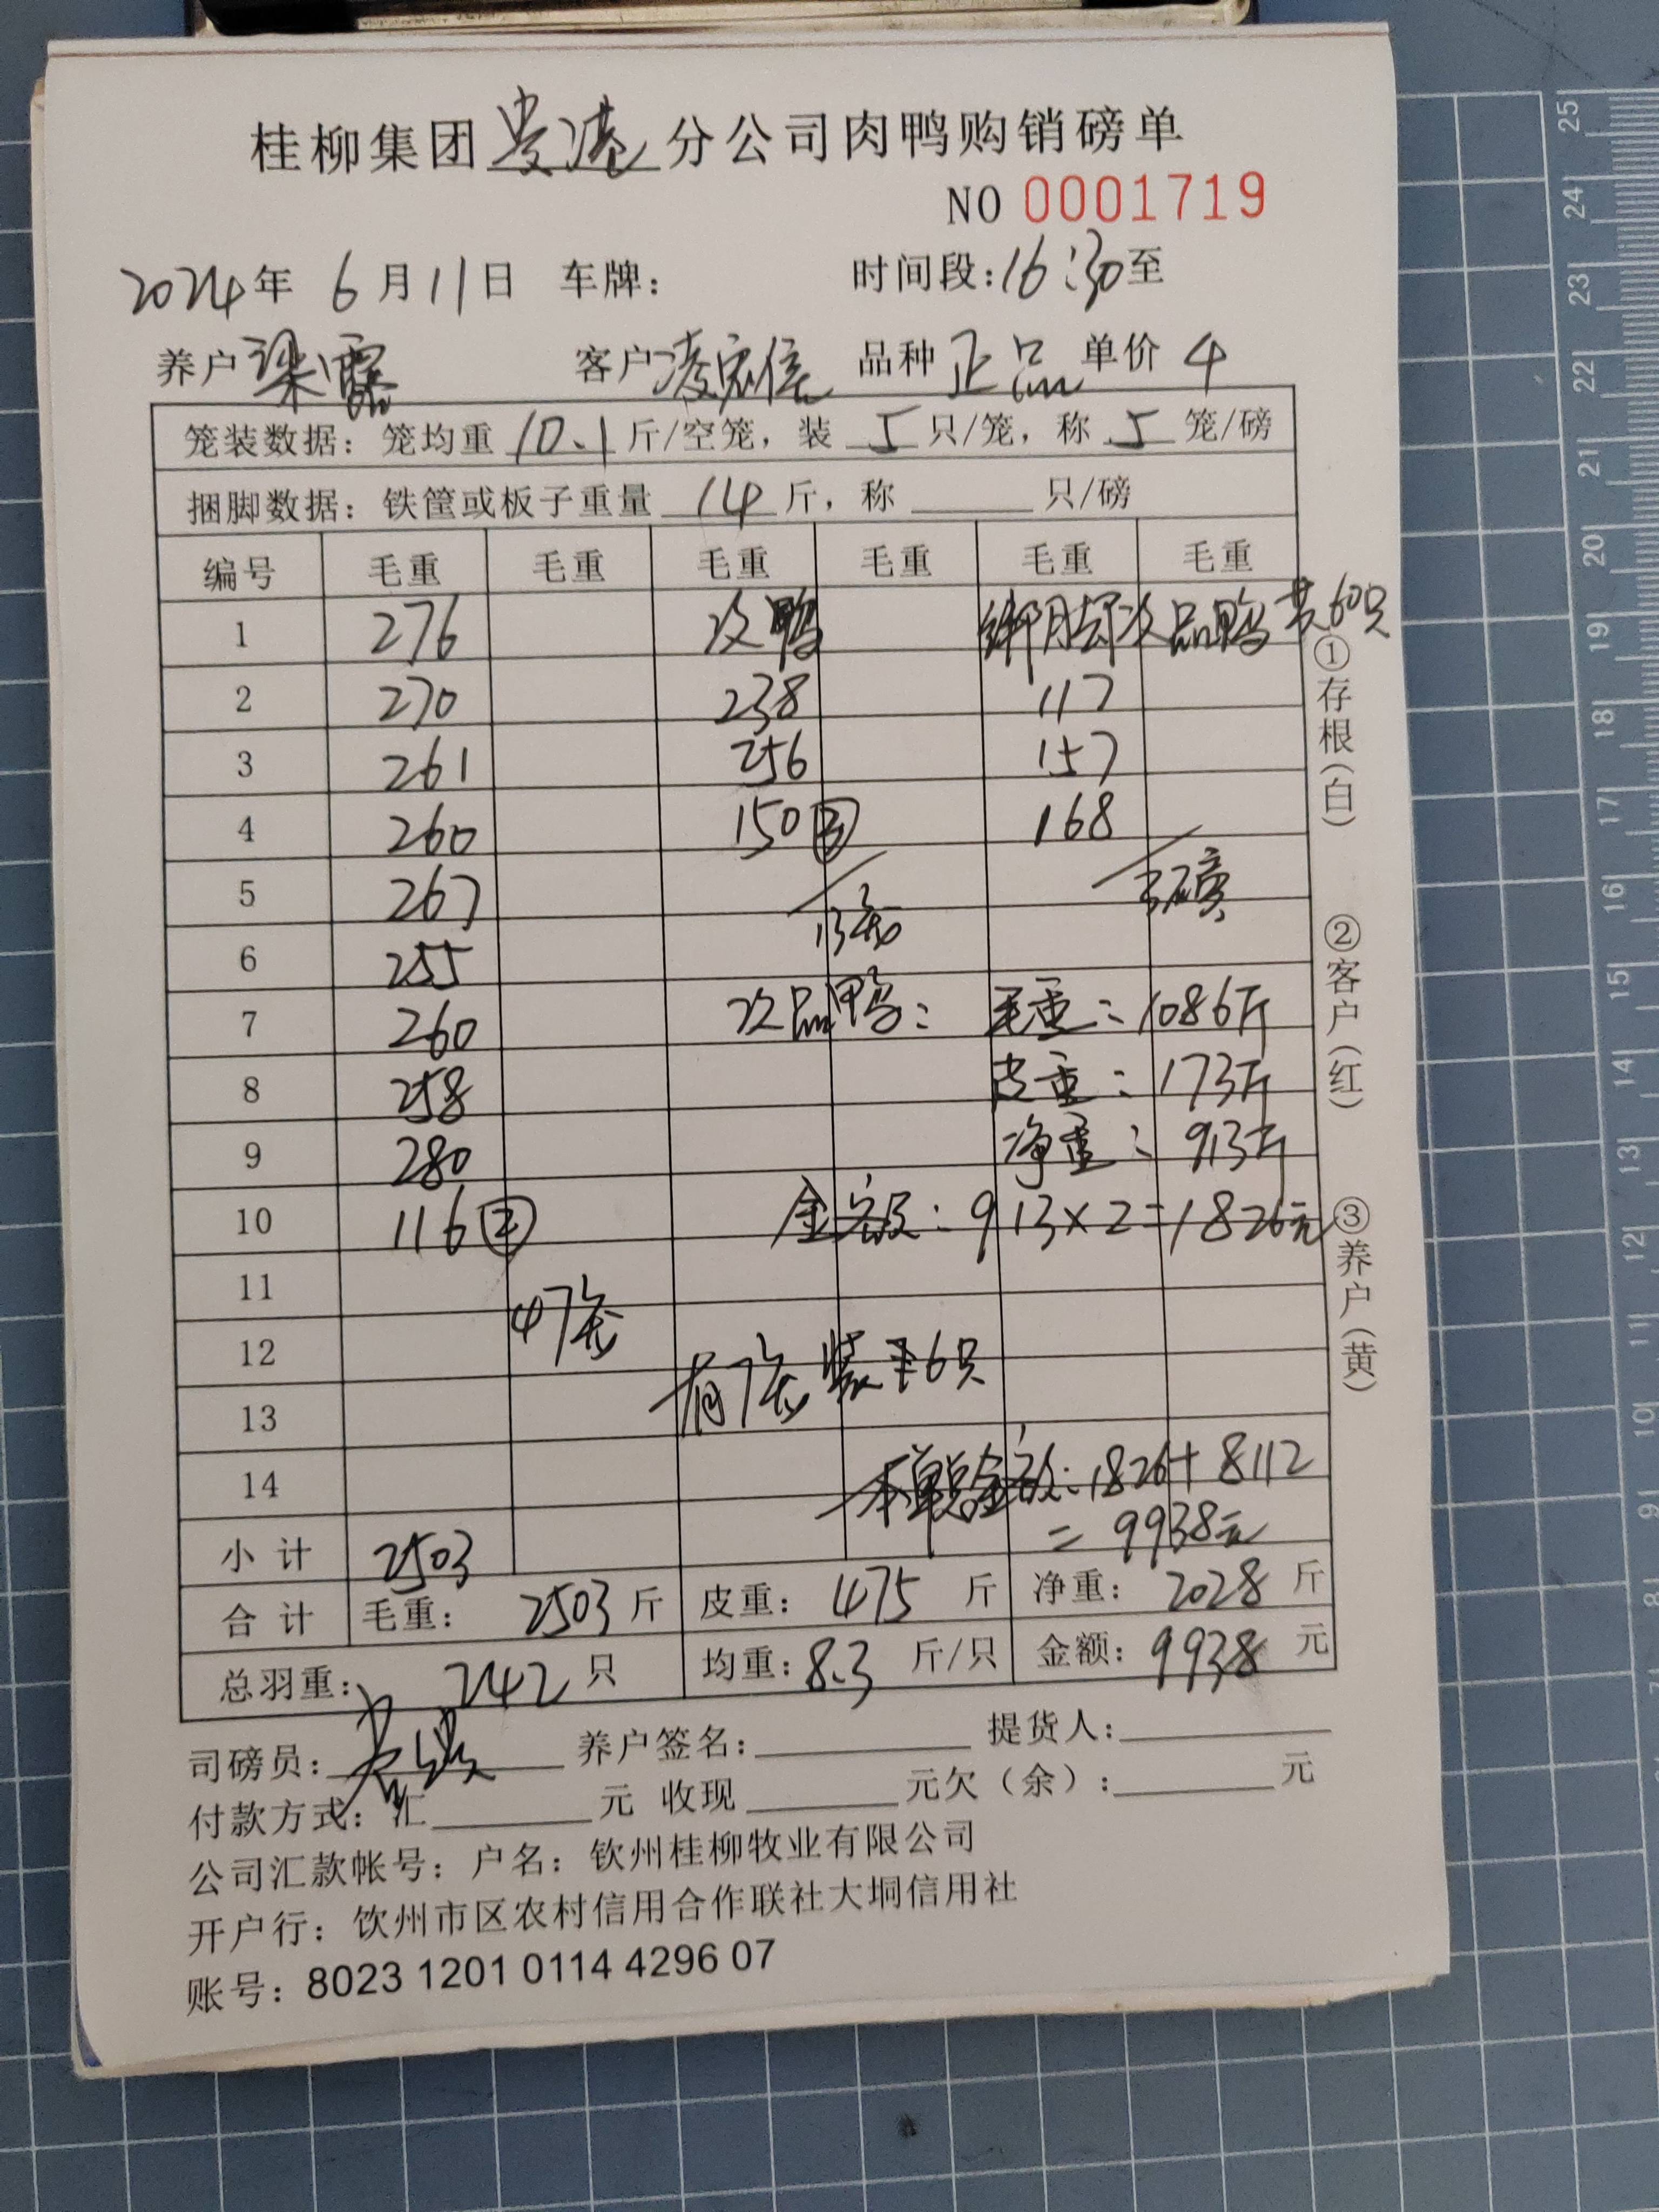 桂柳集团贵港分公司肉鸭购销磅单
NO 0001719
2024年 6月11日 车牌： 时间段：16:30至
养户 梁露 客户 凌宏信 品种 正品 单价 4
笼装数据：笼均重 10.1 斤/空笼，装 5 只/笼，称 5 笼/磅
捆脚数据：铁筐或板子重量 14 斤，称 只/磅
编号 毛重 毛重 毛重 毛重 毛重 毛重
1 276 次鸭 绑脚次品鸭 共60只
2 270 238 117
3 261 256 157
4 260 150③ 168
5 267 13笼 3磅
6 255
7 260 次品鸭： 毛重：1086斤
8 258 皮重：173斤
9 280 净重：913斤
10 116② 金额：913×2=1826元
11
47笼
12 有7笼装6只
13
14 本单总金额：1826+8112
=9938元
小计 2503
合计 毛重：2503斤 皮重：475斤 净重：2028斤
总羽重：242只 均重：8.3斤/只 金额：9938元
司磅员： 养户签名： 提货人：
付款方式：汇 元 收现 元欠（余）： 元
公司汇款帐号：户名：钦州桂柳牧业有限公司
开户行：饮州市区农村信用合作联社大垌信用社
账号：8023 1201 0114 4296 07
①存根（白）
②客户（红）
③养户（黄）
25
24
23
22
21
20
19
18
17
16
15
14
13
12
11
10
9
8